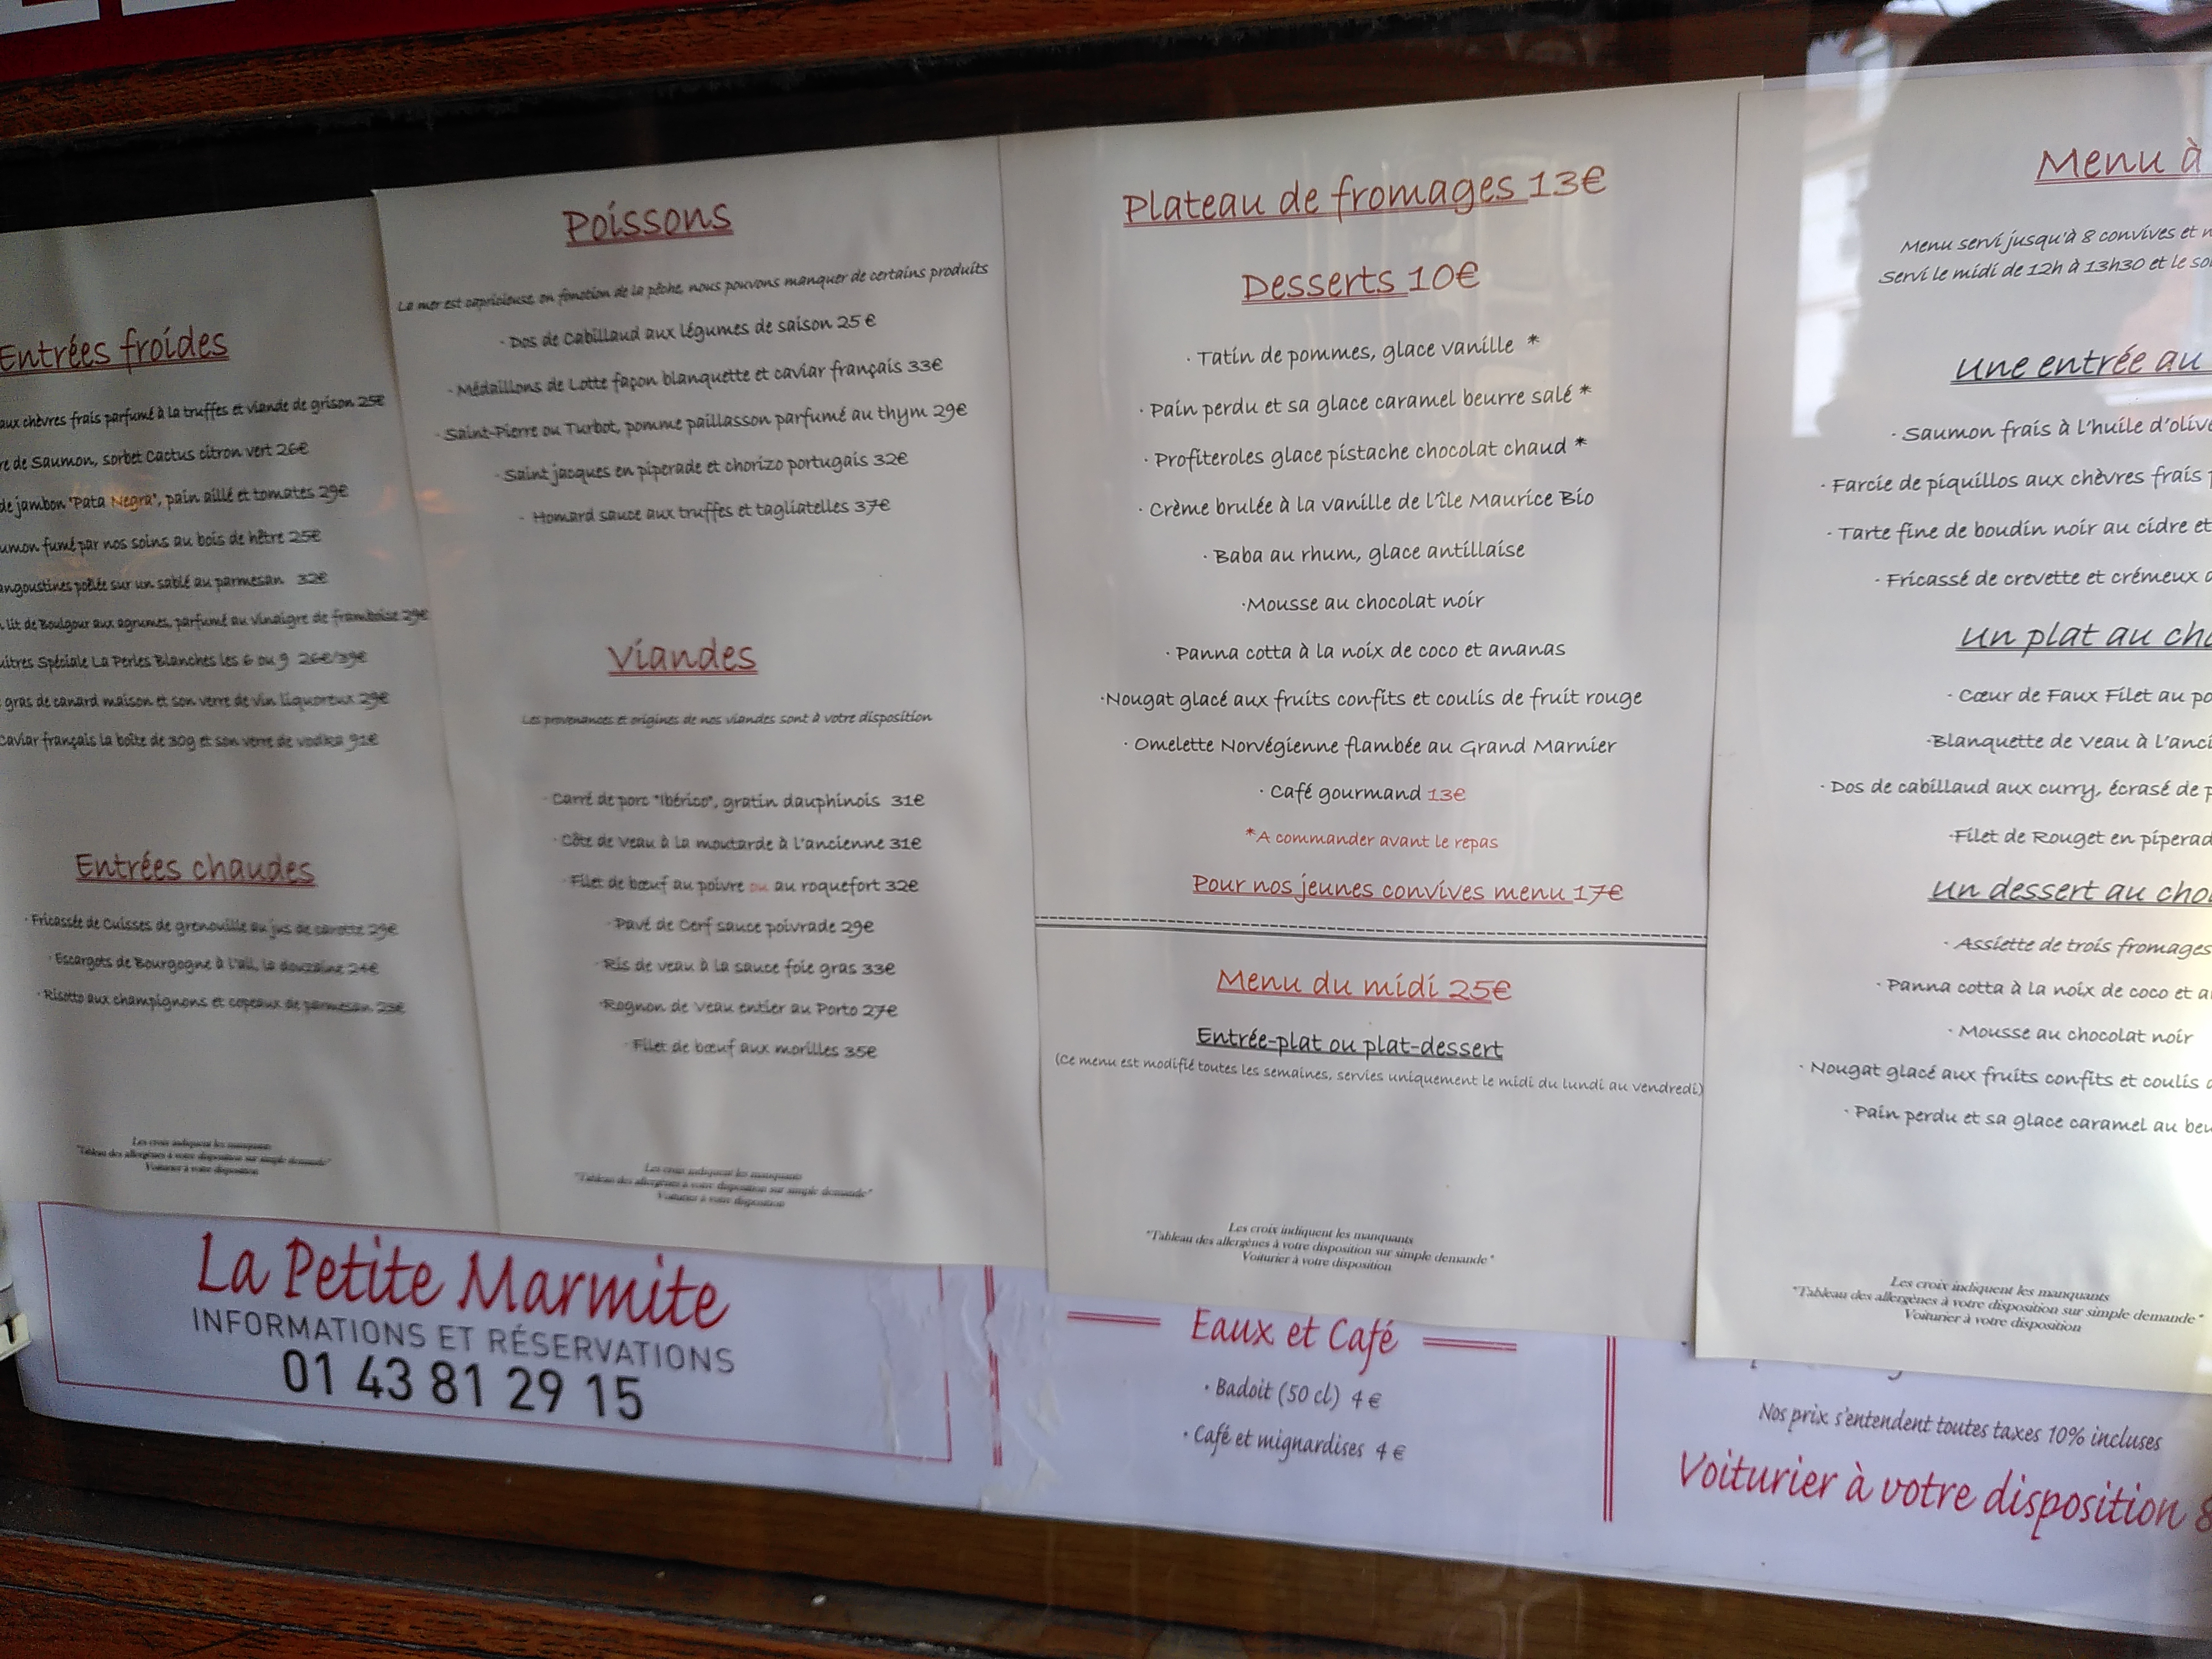 Entrées froides
aux chèvres frais parfumé à la truffes et viande de grison 25€
re de Saumon, sorbet Cactus citron vert 26€
de jambon "Pata Negra", pain aillé et tomates 29€
umon fumé par nos soins au bois de hêtre 25€
angoustines poêlée sur un sablé au parmesan 32€
lit de Boulgour aux agrumes, parfumé au vinaigre de framboise 29€
uîtres Spéciale La Perles Blanches les 6 ou 9 26€/39€
gras de canard maison et son verre de vin liquoreux 29€
Caviar français la boîte de 30g et son verre de vodka 91€
Entrées chaudes
· Fricassée de Cuisses de grenouille au jus de carotte 29€
· Escargots de Bourgogne à l'ail, la douzaine 24€
· Risotto aux champignons et copeaux de parmesan 23€
Les croix indiquent les manquants
"Tableau des allergènes à votre disposition sur simple demande"
Voiturier à votre disposition
Poissons
La mer est capricieuse, en fonction de la pêche, nous pouvons manquer de certains produits
· Dos de Cabillaud aux légumes de saison 25 €
· Médaillons de Lotte façon blanquette et caviar français 33€
· Saint-Pierre ou Turbot, pomme paillasson parfumé au thym 29€
· Saint jacques en piperade et chorizo portugais 32€
· Homard sauce aux truffes et tagliatelles 37€
Viandes
Les provenances et origines de nos viandes sont à votre disposition
· Carré de porc "Ibérico", gratin dauphinois 31€
· Côte de veau à la moutarde à l'ancienne 31€
· Filet de bœuf au poivre ou au roquefort 32€
· Pavé de Cerf sauce poivrade 29€
· Ris de veau à la sauce foie gras 33€
· Rognon de veau entier au Porto 27€
· Filet de bœuf aux morilles 35€
Les croix indiquent les manquants
"Tableau des allergènes à votre disposition sur simple demande"
Voiturier à votre disposition
Plateau de fromages 13€
Desserts 10€
· Tatin de pommes, glace vanille *
· Pain perdu et sa glace caramel beurre salé *
· Profiteroles glace pistache chocolat chaud *
· Crème brulée à la vanille de l'île Maurice Bio
· Baba au rhum, glace antillaise
·Mousse au chocolat noir
· Panna cotta à la noix de coco et ananas
·Nougat glacé aux fruits confits et coulis de fruit rouge
· Omelette Norvégienne flambée au Grand Marnier
· Café gourmand 13€
*A commander avant le repas
Pour nos jeunes convives menu 17€
Menu du midi 25€
Entrée-plat ou plat-dessert
(Ce menu est modifié toutes les semaines, servies uniquement le midi du lundi au vendredi)
Les croix indiquent les manquants
"Tableau des allergènes à votre disposition sur simple demande"
Voiturier à votre disposition
Menu à
Menu servi jusqu'à 8 convives et n
Servi le midi de 12h à 13h30 et le soi
Une entrée au
· Saumon frais à l'huile d'olive
· Farcie de piquillos aux chèvres frais p
· Tarte fine de boudin noir au cidre et
· Fricassé de crevette et crémeux d
Un plat au cho
· Cœur de Faux Filet au po
·Blanquette de Veau à l'anci
· Dos de cabillaud aux curry, écrasé de p
·Filet de Rouget en piperad
Un dessert au cho
· Assiette de trois fromages
· Panna cotta à la noix de coco et a
· Mousse au chocolat noir
· Nougat glacé aux fruits confits et coulis d
· Pain perdu et sa glace caramel au beu
Les croix indiquent les manquants
"Tableau des allergènes à votre disposition sur simple demande"
Voiturier à votre disposition
La Petite Marmite
INFORMATIONS ET RÉSERVATIONS
01 43 81 29 15
Eaux et Café
· Badoit (50 cl) 4 €
· Café et mignardises 4 €
Nos prix s'entendent toutes taxes 10% incluses
Voiturier à votre disposition